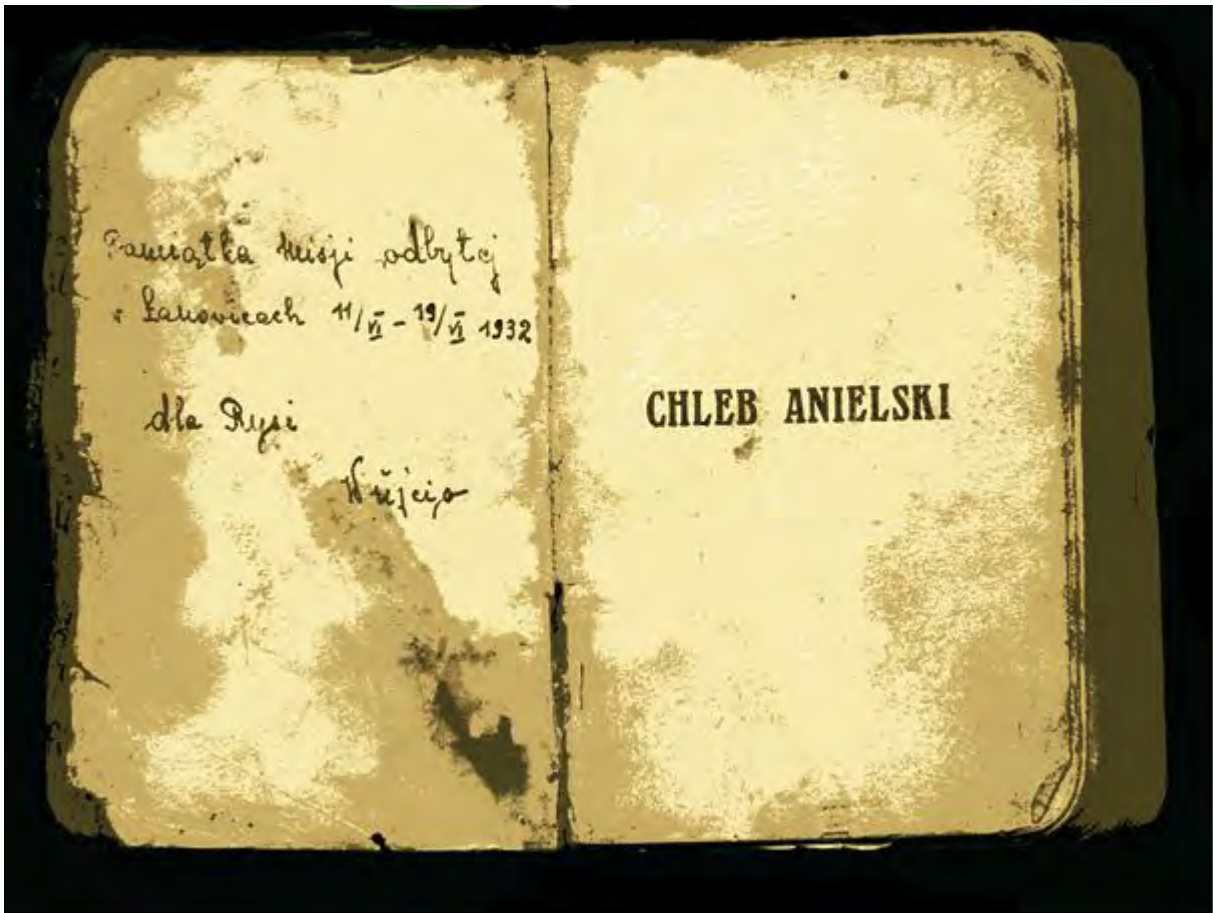 Pamiątka Misji odbytej
w Łanowicach 11/VI - 19/VI 1932
dla Rysi
Wujcio
CHLEB ANIELSKI